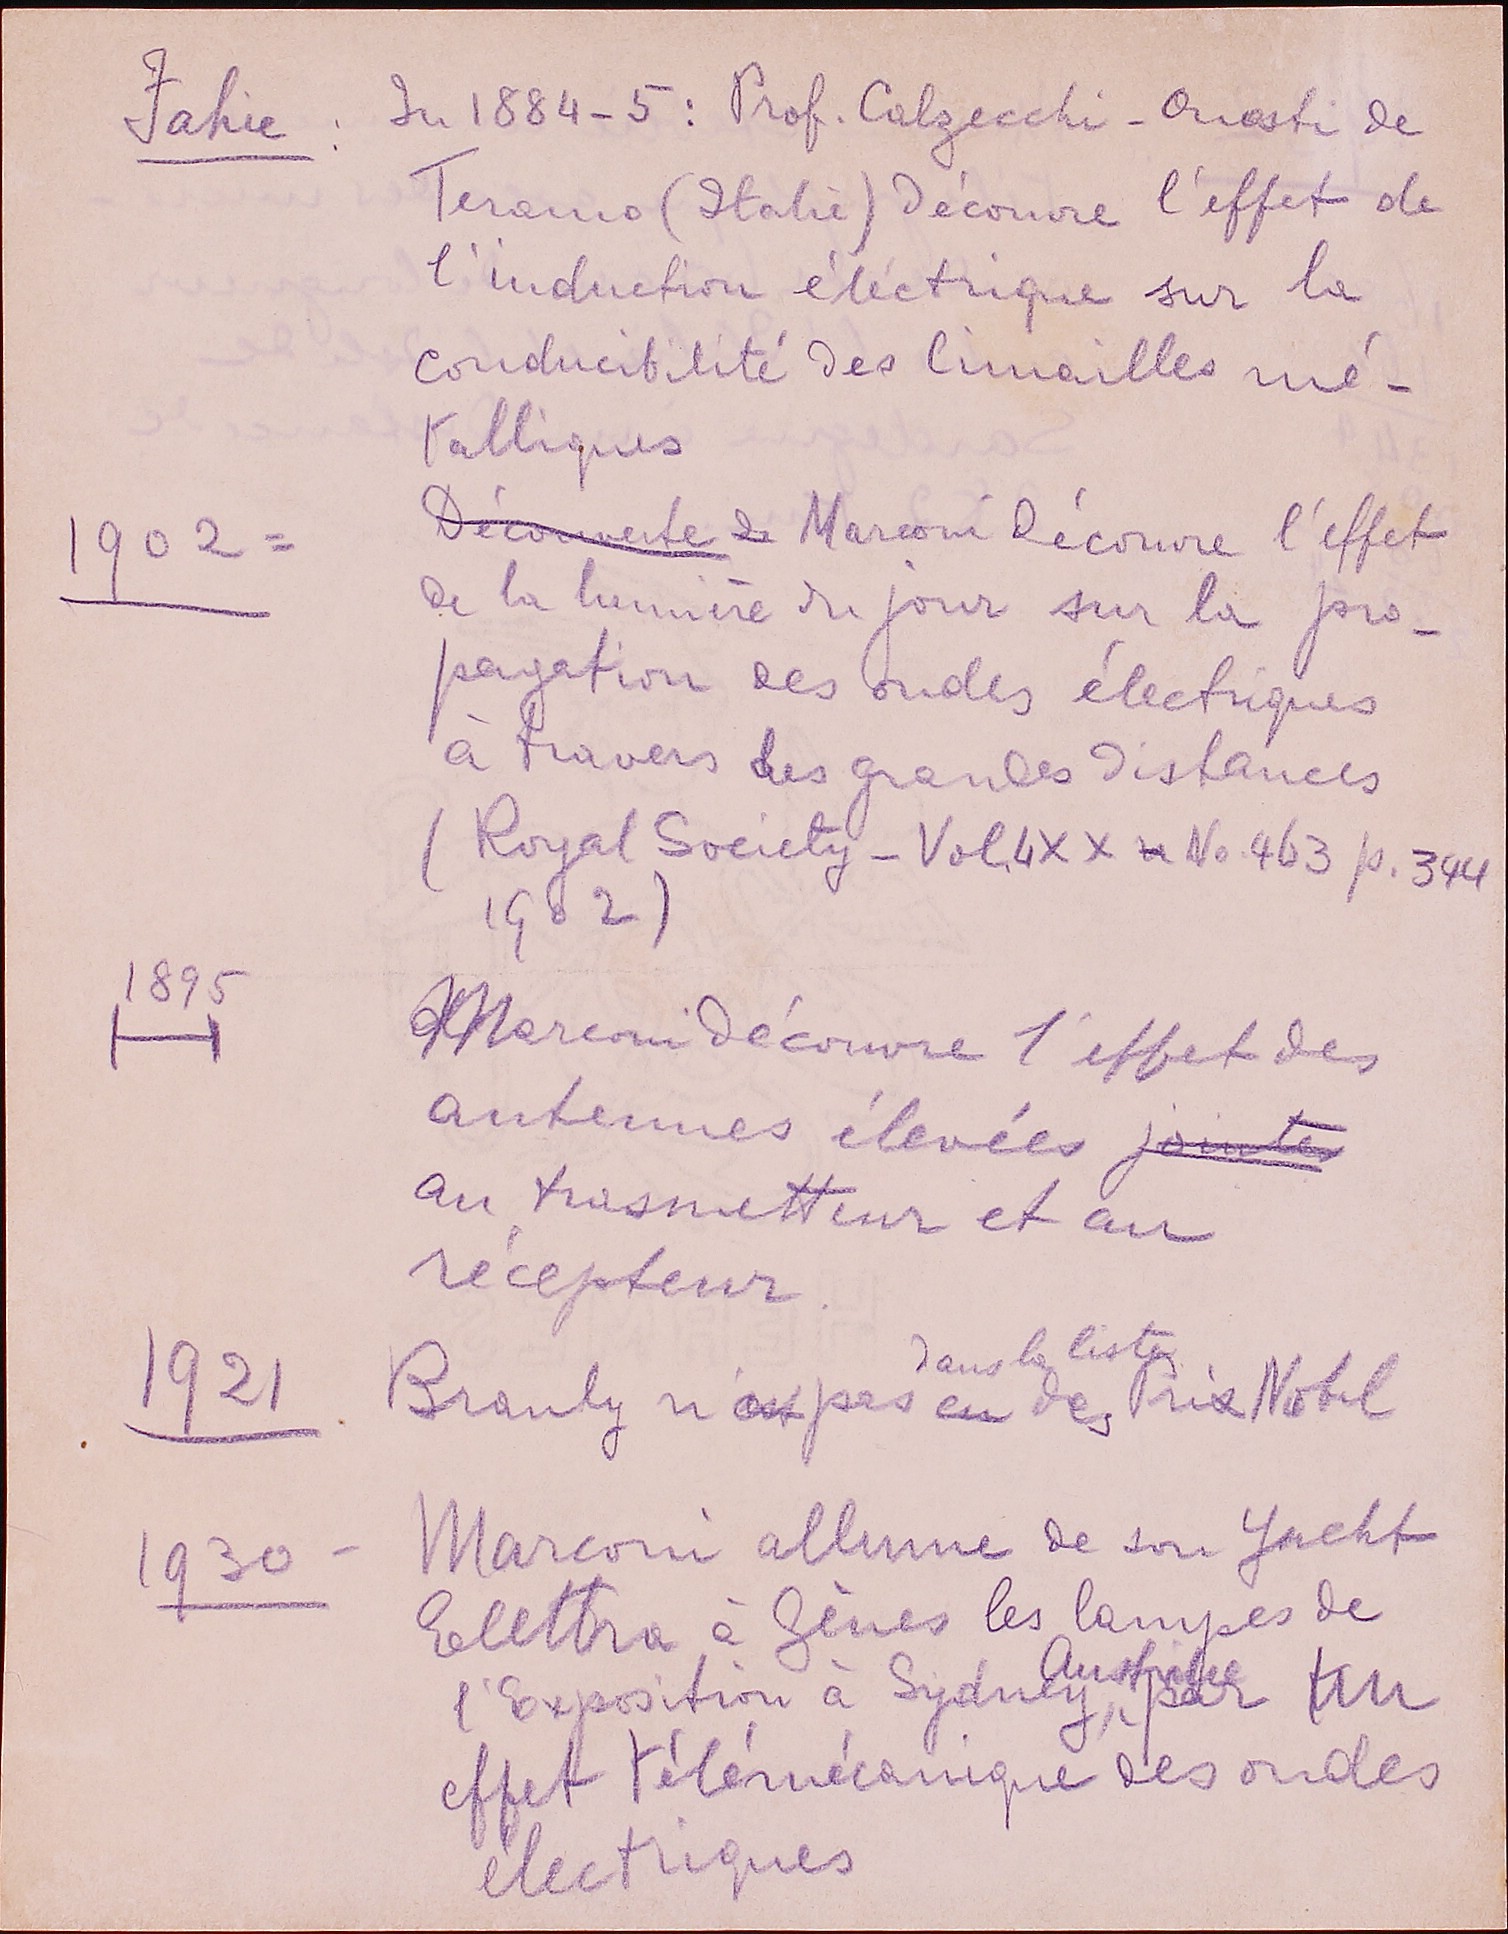 Fahie : In 1884-5: Prof. Calzecchi-Onesti de
Teramo (Italie) découvre l'effet de
l'induction éléctrique sur la
conducibilité des limailles mé-
talliques
1902= Découverte de Marconi découvre l'effet
de la lumière du jour sur la pro-
pagation des ondes électriques
à travers les grandes distances
(Royal Society - Vol. LXX No. 463 p. 344
1902)
1895 Marconi découvre l'effet des
antennes élevées jointes
au trasmetteur et au
récepteur.
dans la liste
1921 Branly n'est pas en des Prix Nobel
1930 - Marconi allume de son Yacht
Elettra à Gènes les lampes de
Australie
l'Exposition à Sydney, par un
effet télémécanique des ondes
électriques